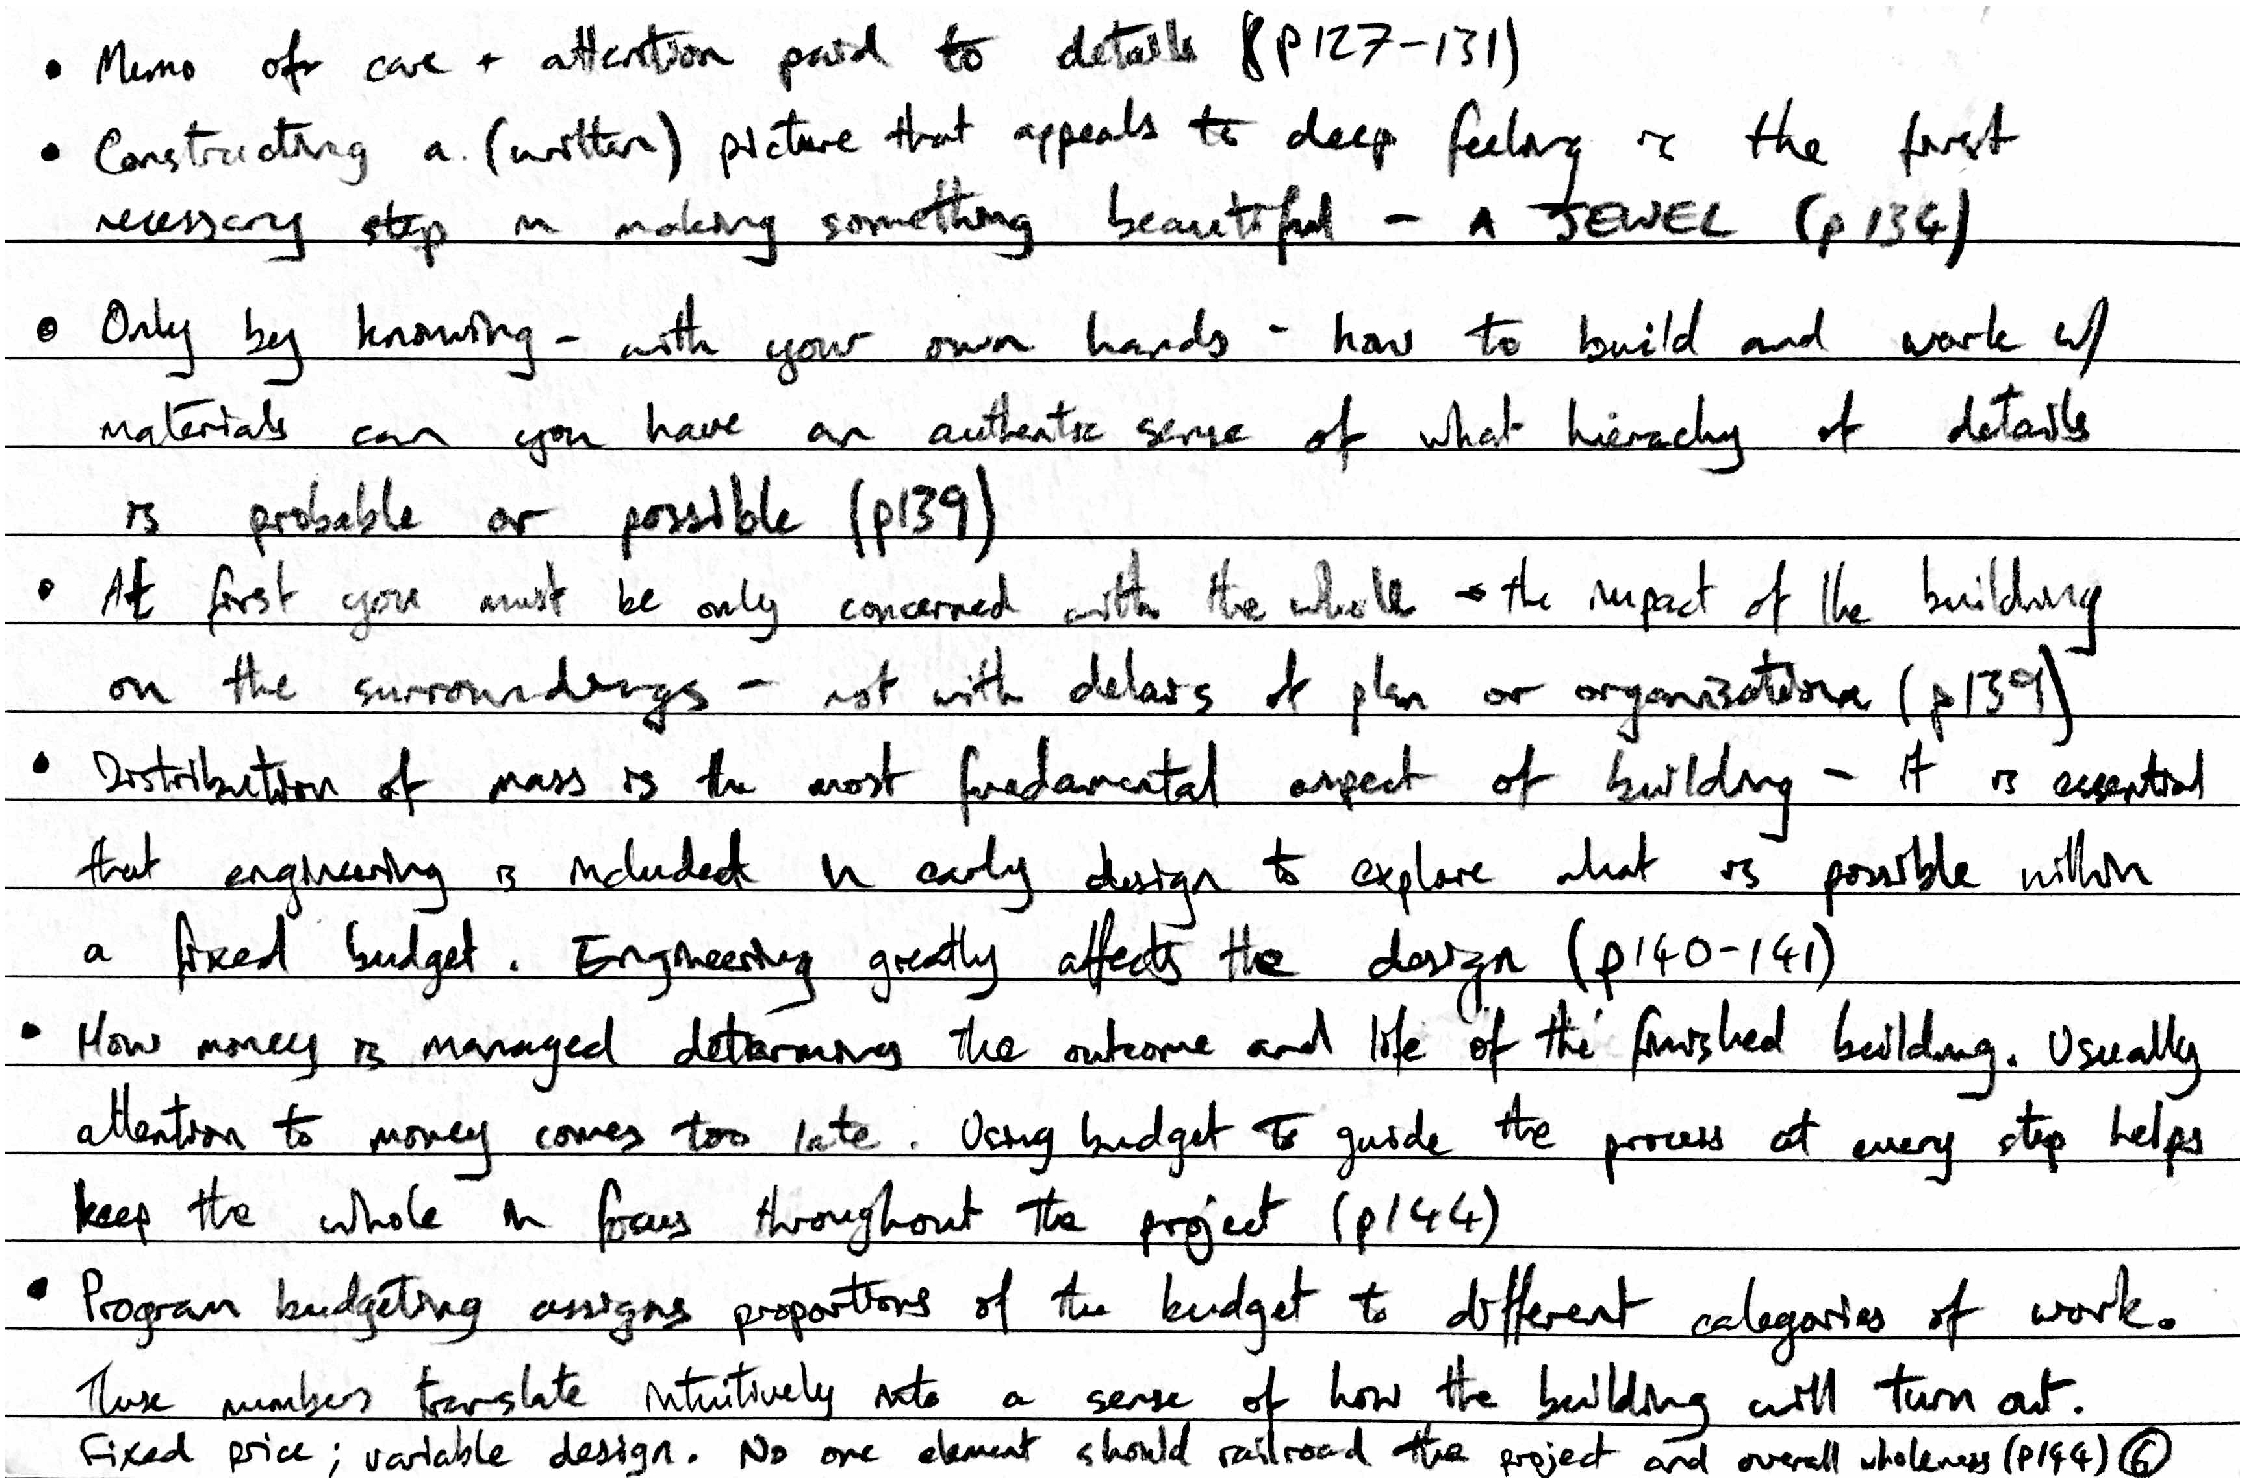 • Memo of care + attention paid to details (p127-131)
• Constructing a (written) picture that appeals to deep feeling is the first
necessary step in making something beautiful - A JEWEL (p134)
• Only by knowing - with your own hands - how to build and work w/
materials can you have an authentic sense of what hierachy of details
is probable or possible (p139)
• At first you must be only concerned with the whole → the impact of the building
on the surroundings - not with detais of plan or organisation (p139)
• Distribution of mass is the most fundamental aspect of building - it is essential
that engineering is included in early design to explore what is possible within
a fixed budget. Engineering greatly affects the design (p140-141)
• How money is managed determines the outcome and life of the finished building. Usually
attention to money comes too late. Using budget to guide the process at every step helps
keep the whole in focus throughout the project (p144)
• Program budgeting assigns proportions of the budget to different categories of work.
These numbers translate intuitively into a sense of how the building will turn out.
Fixed price; variable design. No one element should railroad the project and overall wholeness (p144) 6